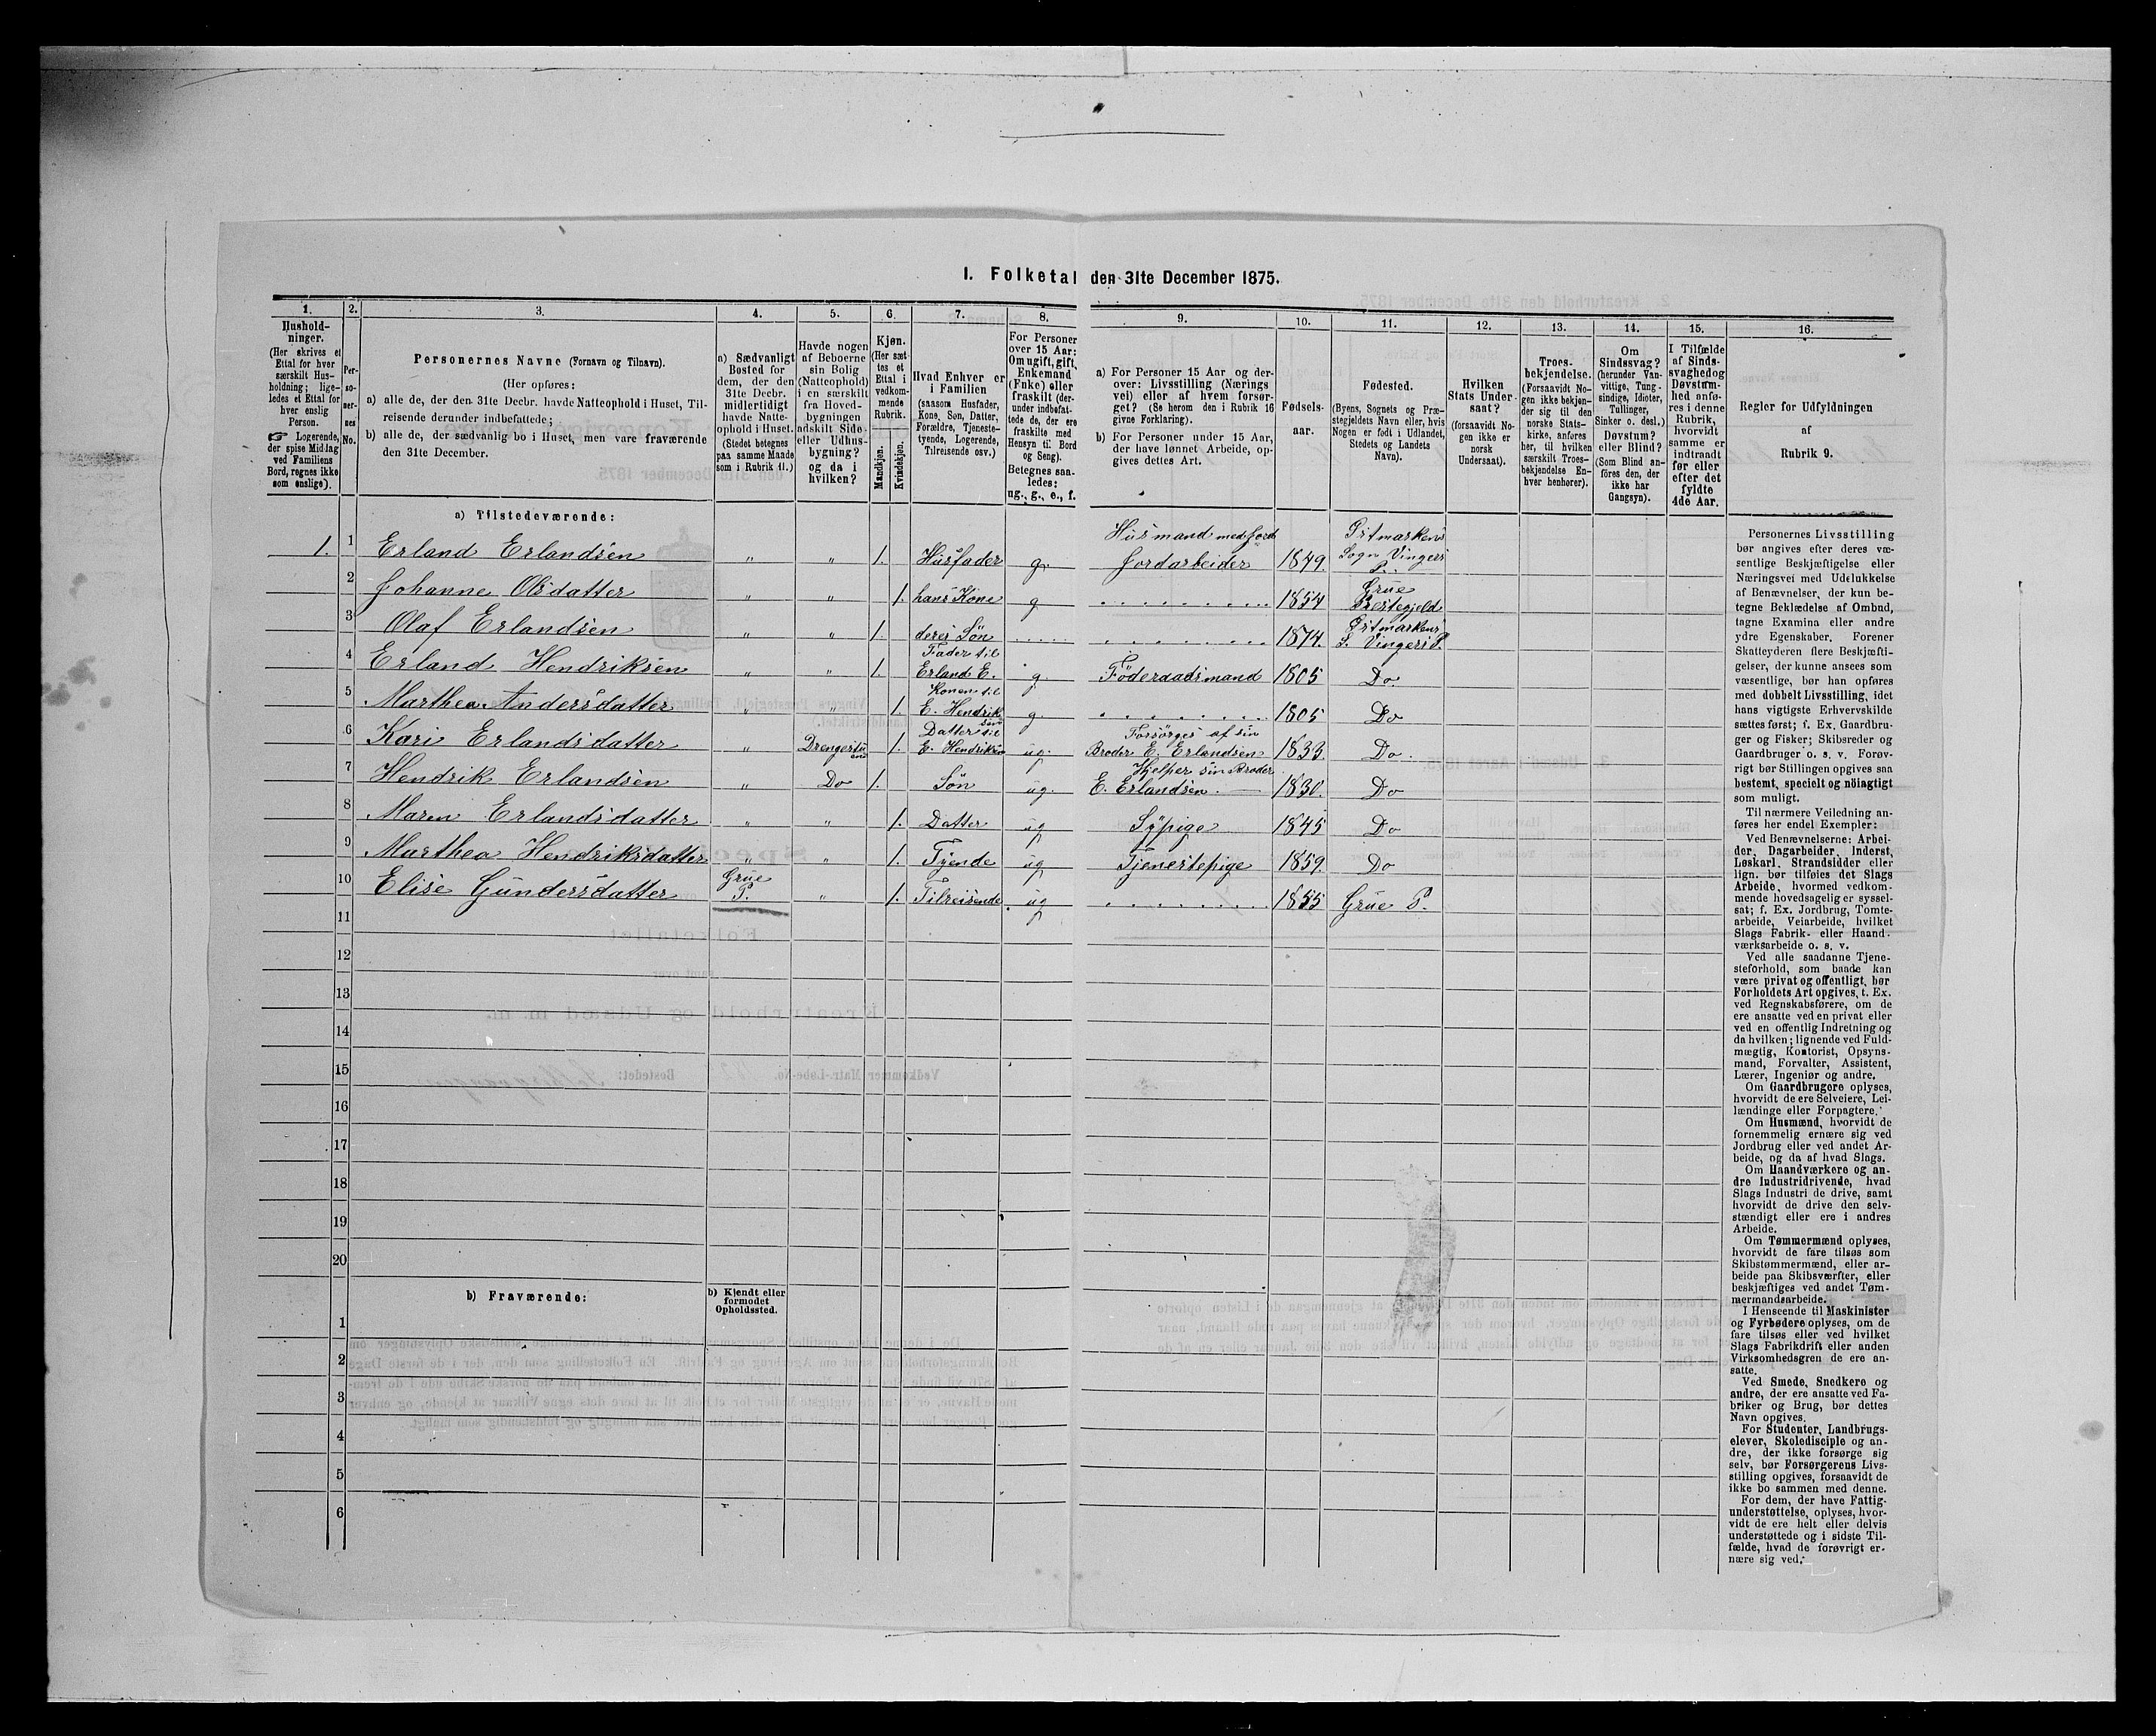 I. Folketal den 31te December 1875.
1.
2.
3.
4.
5.
6.
7.
8.
9.
10.
11.
12.
13.
14.
15.
16.
Hushold-
ninger.
(Her skrives et
Ettal for hver
særskilt Hus-
holdning; lige-
ledes et Ettal for
hver enslig
Person.
☞ Logerende,
der spise Middag
ved Familiens
Bord, regnes ikke
som enslige).
Per-
so-
ner-
nes
No.
Personernes Navne (Fornavn og Tilnavn).
(Her opføres:
a) alle de, der den 31te Decbr. havde Natteophold i Huset, Til-
reisende derunder indbefattede;
b) alle de, der sædvanlig bo i Huset, men vare fraværende
den 31te December.
a) Sædvanligt
Bosted for
dem, der den
31te Decbr.
midlertidigt
havde Natte-
ophold i Huset.
(Stedet betegnes
paa samme Maade
som i Rubrik 11.)
Havde nogen
af Beboerne
sin Bolig
(Natteophold)
i en særskilt
fra Hoved-
bygningen
adskilt Side-
eller Udhus-
bygning?
og da i
hvilken?
Kjøn.
(Her sæt-
tes et
Ettal i
vedkom-
mende
Rubrik.
Mandkjøn.
Kvindekjøn.
Hvad Enhver er
i Familien
(saasom Husfader,
Kone, Søn, Datter,
Forældre, Tjeneste-
tyende, Logerende,
Tilreisende osv.)
For Personer
over 15 Aar:
Om ugift, gift,
Enkemand
(Enke) eller
fraskilt (der-
under indbefat-
tede de, der ere
fraskilte med
Hensyn til Bord
og Seng).
Betegnes saa-
ledes:
ug., g., e., f.
a) For Personer 15 Aar og der-
over: Livsstilling (Nærings
vei) eller af hvem forsør-
get? (Se herom den i Rubrik 16
givne Forklaring).
b) For Personer under 15 Aar,
der have lønnet Arbeide, op-
gives dettes Art.
Fødsels-
aar.
Fødested.
(Byens, Sognets og Præ-
stegjeldets Navn eller, hvis
Nogen er født i Udlandet,
Stedets og Landets
Navn).
Hvilken
Stats Under-
saat?
(forsaavidt No-
gen ikke er
norsk
Undersaat).
Troes-
bekjendelse.
(Forsaavidt No-
gen ikke bekjen-
der sig til den
norske Stats-
kirke, anføres
her, til hvilken
særskilt Troes-
bekjendelse En-
hver henhører).
Om
Sindssvag?
(herunder Van-
vittige, Tung-
sindige, Idioter,
Tullinger,
Sinker o. desl.)
Døvstum?
eller Blind?
(Som Blind an-
føres den, der
ikke har
Gangsyn).
I Tilfælde
af Sinds-
svaghed og
Døvstum-
hed anfø-
res i denne
Rubrik,
hvorvidt
samme er
indtraadt
før eller
efter det
fyldte
4de Aar.
Regler for Udfyldningen
af
Rubrik 9.
a) Tilstedeværende:
1. 1 Erland Erlandsen " " 1. Husfader g. Husmand med Jord Jordarbeider 1849. Østmarkens Sogn Vingers P.
2 Johanne Olsdatter " " 1. hans Kone g 1854 Grue Prestegjeld
3 Olaf Erlandsen " " 1. deres Søn 1874. Østmarkens S. Vingers P.
4 Erland Hendriksen " " 1. Fader til Erland E. g. Föderaadsmand 1805 Do.
5 Marthea Andersdatter " " 1. Konen til E. Hendriksen g. 1805 Do
6 Kari Erlandsdatter " Drengestuen 1. Datter til E. Hendriksen ug. Forsørges af sin Broder E. Erlandsen 1833. Do.
7 Hendrik Erlandsen " Do 1. Søn ug. Hjelper sin Broder E. Erlandsen. 1830. Do
8 Maren Erlandsdatter " " 1. Datter ug Sÿpige 1845 Do
9 Marthea Hendriksdatter " " 1. Tyende ug Tjenestepige 1859. Do
10 Elise Gundersdatter Grue P. " 1. Tilreisende ug 1855 Grue P.
11
12
13
14
15
16
17
18
19
20
b) Fraværende:
b) Kjendt eller
formodet
Opholdssted.
1
2
3
4
5
6
Personernes Livsstilling
bør angives efter deres væ-
sentlige Beskjæftigelse eller
Næringsvei med Udelukkelse
af Benævnelser, der kun be-
tegne Beklædelse af Ombud,
tagne Examina eller andre
ydre Egenskaber. Forener
Skatteyderen flere Beskjæfti-
gelser, der kunne ansees som
væsentlige, bør han opføres
med dobbelt Livsstilling, idet
hans vigtigste Erhvervskilde
sættes først; f. Ex. Gaardbru-
ger og Fisker; Skibsreder og
Gaardbruger o. s. v. Forøv-
rigt bør Stillingen opgives saa
bestemt, specielt og nöiagtigt
som muligt.
Til nærmere Veiledning an-
føres her endel Exempler:
Ved Benævnelserne: Arbei-
der, Dagarbeider, Inderst,
Løskarl, Strandsidder eller
lign. bør tilføies det Slags
Arbeide, hvormed vedkom-
mende hovedsagelig er syssel-
sat; f. Ex. Jordbrug, Tomte-
arbeide, Veiarbeide, hvilket
Slags Fabrik- eller Haand-
værksarbeide o. s. v.
Ved alle saadanne Tjene-
steforhold, som baade kan
være privat og offentligt, bør
Forholdets Art opgives, t. Ex.
ved Regnskabsførere, om de
ere ansatte ved en privat eller
ved en offentlig Indretning og
da hvilken; lignende ved Fuld-
mægtig, Kontorist, Opsyns-
mand, Forvalter, Assistent,
Lærer, Ingeniør og andre.
Om Gaardbrugere oplyses,
hvorvidt de ere Selveiere, Lei-
lændinge eller Forpagtere.
Om Husmænd, hvorvidt de
fornemmelig ernære sig ved
Jordbrug eller ved andet Ar-
beide, og da af hvad Slags.
Om Haandværkere og an-
dre Industridrivende, hvad
Slags Industri de drive, samt
hvorvidt de drive den selv-
stændigt eller ere i andres
Arbeide.
Om Tømmermænd oplyses,
hvorvidt de fare tilsøs som
Skibstømmermænd, eller ar-
beide paa Skibsværfter, eller
beskjæftiges ved andet Tøm-
mermandsarbeide.
I Henseende til Maskinister
og Fyrbødere oplyses, om de
fare tilsøs eller ved hvilket
Slags Fabrikdrift eller anden
Virksomhedsgren de ere an-
satte.
Ved Smede, Snedkere og
andre, der ere ansatte ved Fa-
briker og Brug, bør dettes
Navn opgives.
For Studenter, Landbrugs-
elever, Skoledisciple og an-
dre, der ikke forsørge sig
selv, bør Forsørgerens Livs-
stilling opgives, forsaavidt de
ikke bo sammen med denne.
For dem, der have Fattig-
understøttelse, oplyses, hvor-
vidt de ere helt eller delvis
understøttede og i sidste Til-
fælde, hvad de forøvrigt er-
nære sig ved.